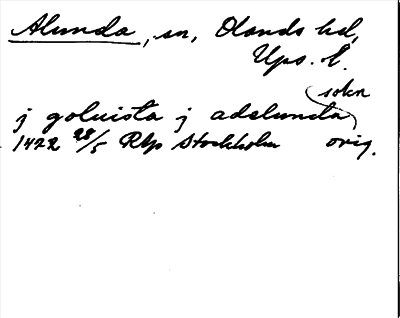 Alunda, sn, Olands hd,
Ups. l.
sokn
j goluista j adelunda
1422 28/5 RAp Stockholm orig.